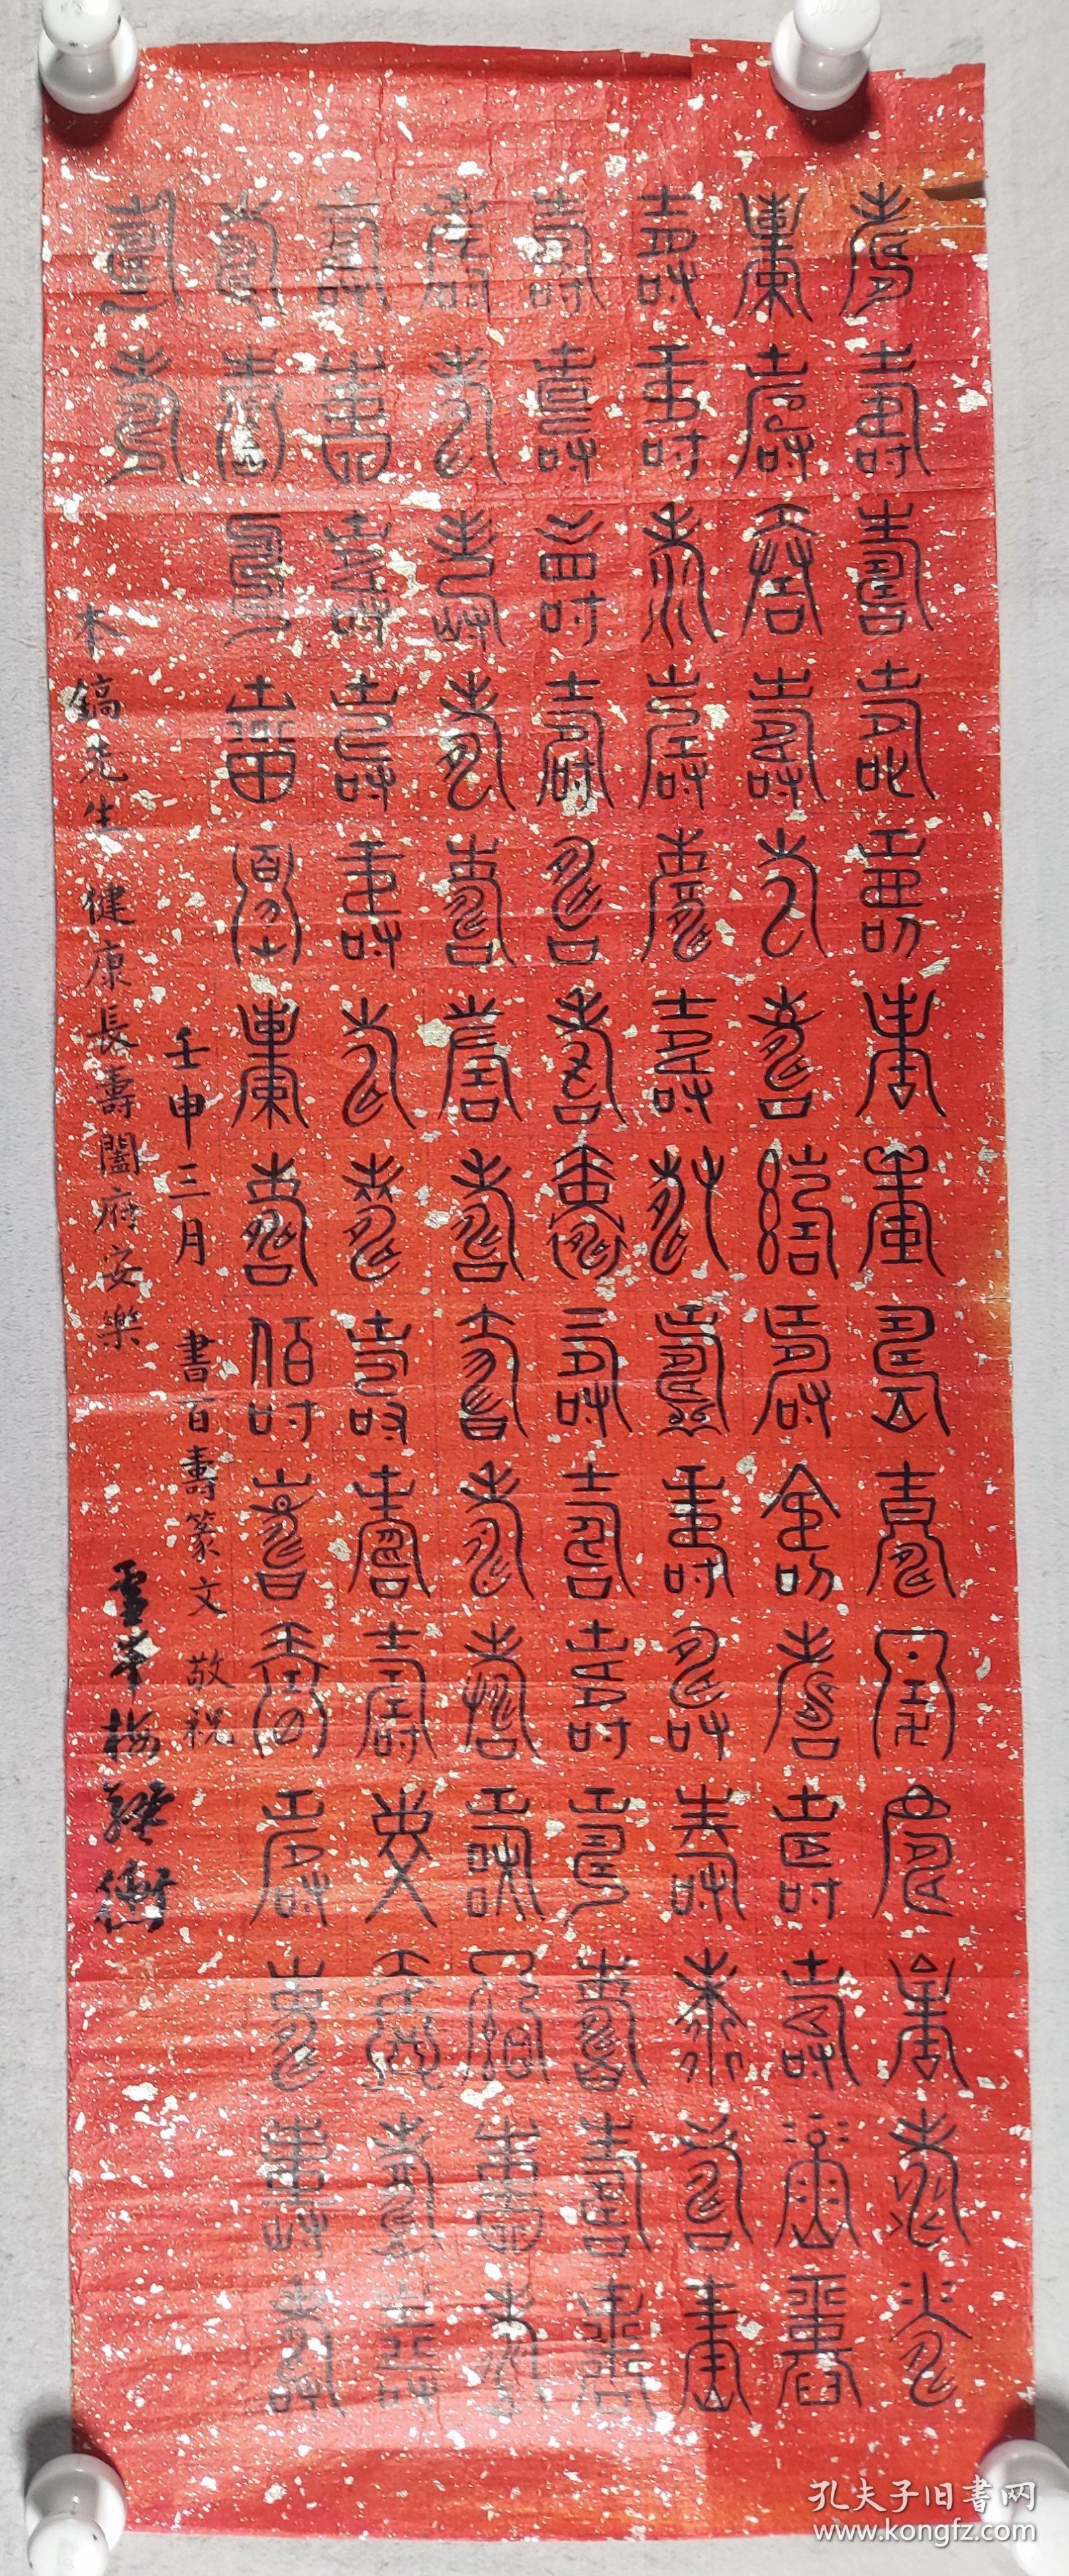 壽壽壽壽壽壽壽壽壽壽壽壽壽壽
壽壽壽壽壽壽壽壽壽壽壽壽壽壽
壽壽壽壽壽壽壽壽壽壽壽壽壽壽
壽壽壽壽壽壽壽壽壽壽壽壽壽壽
壽壽壽壽壽壽壽壽壽壽壽壽壽壽
壽壽壽壽壽壽壽壽壽壽壽壽壽壽
壽壽壽壽壽壽壽壽壽壽壽壽壽壽
壽壽
壬申三月 書百壽篆文 敬祝
本鎬先生 健康長壽闔府安樂
梅
孔夫子旧书网
www.kongfz.com